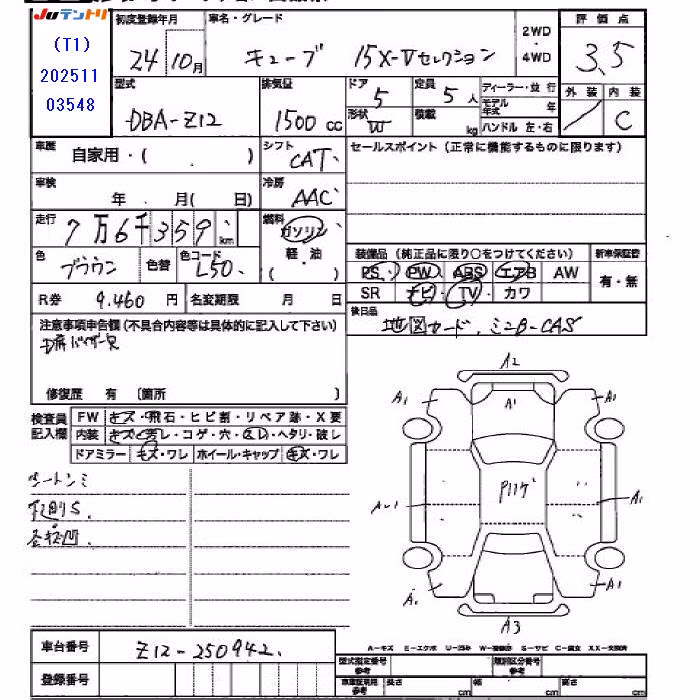 Juテントリ
(T1)
202511
03548
初度登録年月 車名・グレード 2WD・4WD 評価点
24 10月 キューブ 15X-Vセレクション 3.5
型式 排気量 ドア 定員 ディーラー・並行 外装 内装
DBA-Z12 1500cc 5 5人 モデル年式 年 / C
形状 W 積載 kg ハンドル 左・右
車歴 自家用・( ) シフト CAT セールスポイント(正常に機能するものに限ります)
車検 年 月( 日) 冷房 AAC
走行 7万6千359 km 燃料 ガソリン 軽・油 ( )
色 ブラウン 色替 色コード L50
装備品(純正品に限り○をつけてください) 新車保証書
PS PW ABS エアB AW 有・無
SR ナビ TV カワ
R券 9.460円 名変期限 月 日
後日品 地図カード、ミニB-CAS
注意事項申告欄(不具合内容等は具体的に記入して下さい)
修復歴 有 〔箇所 〕
検査員記入欄 FW キズ・飛石・ヒビ割・リペア跡・X要
内装 キズ・汚レ・コゲ・穴・スレ・ヘタリ・破レ
ドアミラー キズ・ワレ ホイール・キャップ キズ・ワレ
シートシミ
A2
A1 A1 A1
AU1 A1
A1 A1
A3
車台番号 Z12-250942
A-キズ E-エクボ U-凹み W-補修跡 S-サビ C-腐食 XX-交換済
登録番号 型式指定番号 参考 類別区分番号 参考
車庫証明用 参考 長さ cm 幅 cm 高さ cm